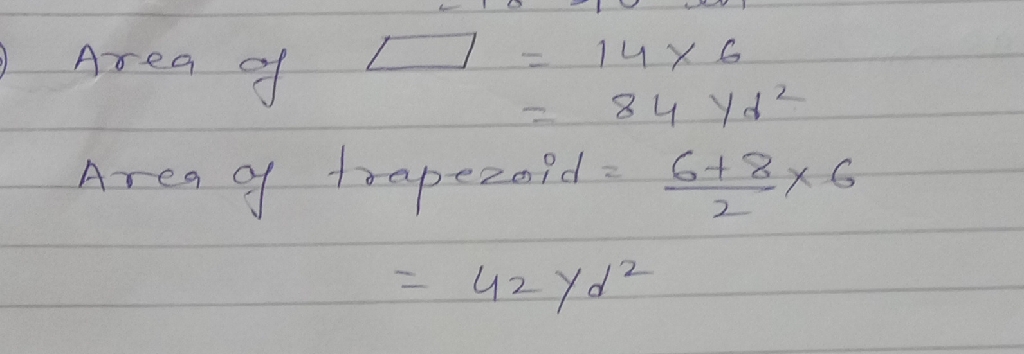 Area of ▱ = 14 x 6
= 84 yd²
Area of trapezoid = 6+8/2 x 6
= 42 yd²